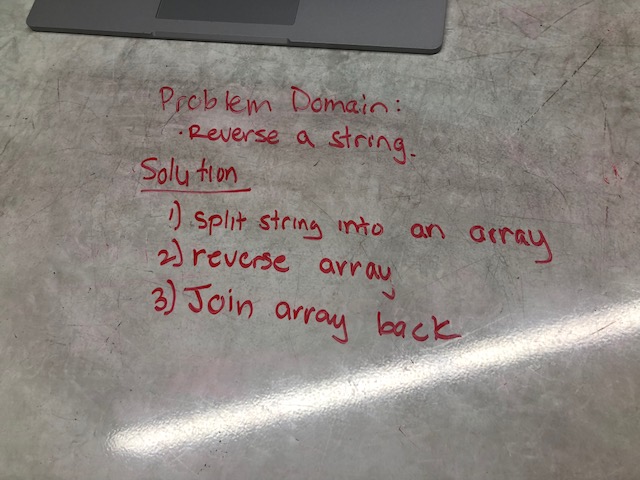 Problem Domain:
· Reverse a string.
Solution
1) split string into an array
2) reverse array
3) Join array back